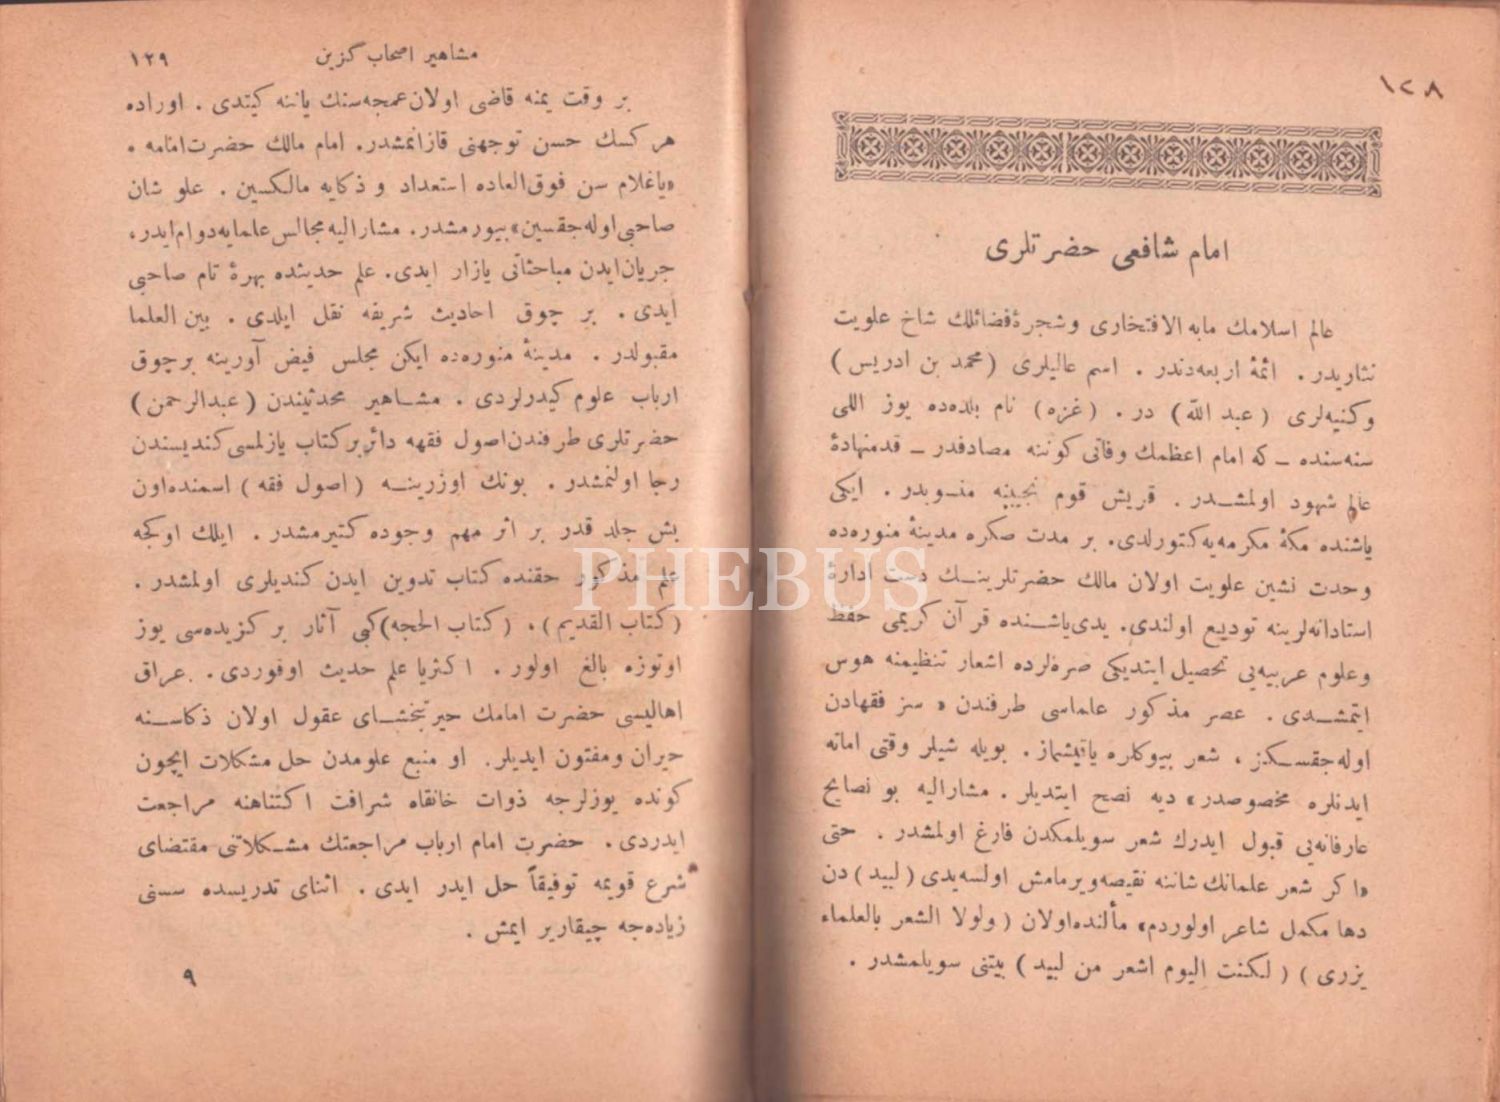 ١٢٨
امام شافعی حضرتلری
عالم اسلامك مابه الافتخاری وشجرهٔ فضائلك شاخ علویت
نثاریدر . ائمهٔ اربعه‌دندر . اسم عالیلری (محمد بن ادریس)
وكنیه‌لری (عبد الله) در . (غزه) نام بلده‌ده یوز اللی
سنه‌سنده ـ كه امام اعظمك وفاتی كوننه مصادفدر ـ قدمنهادهٔ
عالم شهود اولمشدر . قریش قوم نجیبنه منسوبدر . ایكی
یاشنده مكهٔ مكرمه‌یه كتورلدی. بر مدت صكره مدینهٔ منوره‌ده
وحدت نشین علویت اولان مالك حضرتلرینك دست ادارهٔ
استادانه‌لرینه تودیع اولندی. یدی یاشنده قرآن كریمی حفظ
وعلوم عربیه‌یی تحصیل ایتدیكی صره‌لرده اشعار تنظیمنه هوس
ایتمشدی . عصر مذكور علماسی طرفندن « سز فقهادن
اوله‌جقسكز ، شعر بیوكلره یاقیشماز . بویله شیلر وقتی اماته
ایدنلره مخصوصدر» دیه نصح ایتدیلر . مشارالیه بو نصایح
عارفانه‌یی قبول ایدرك شعر سویلمكدن فارغ اولمشدر . حتی
«اكر شعر علمانك شاننه نقیصه ویرمامش اولسه‌یدی (لبید) دن
دها مكمل شاعر اولوردم» مألنده اولان (ولولا الشعر بالعلماء
یزری) (لكنت الیوم اشعر من لبید) بیتنی سویلمشدر .
مشاهیر اصحاب گزین
١٢٩
بر وقت یمنه قاضی اولان عمجه‌سنك یاننه كیتدی . اوراده
هركسك حسن توجهنی قازانمشدر. امام مالك حضرت امامه .
«یاغلام سن فوق‌العاده استعداد و ذكایه مالكسین . علو شان
صاحبی اوله‌جقسین» بیورمشدر. مشارالیه مجالس علمایه دوام ایدر،
جریان ایدن مباحثاتی یازار ایدی. علم حدیثده بهرهٔ تام صاحبی
ایدی . بر چوق احادیث شریفه نقل ایلدی . بین العلما
مقبولدر . مدینهٔ منوره‌ده ایكن مجلس فیض آورینه برچوق
ارباب علوم كیدرلردی . مشاهیر محدثیندن (عبدالرحمن)
حضرتلری طرفندن اصول فقهه دائر بر كتاب یازلمسی كندیسندن
رجا اولنمشدر . بونك اوزرینه (اصول فقه) اسمنده اون
بش جلد قدر بر اثر مهم وجوده كتیرمشدر . ایلك اوكجه
علم مذكور حقنده كتاب تدوین ایدن كندیلری اولمشدر .
(كتاب القدیم) . (كتاب الحجه) كبی آثار بر كزیده‌سی یوز
اوتوزه بالغ اولور . اكثریا علم حدیث اوقوردی . عراق
اهالیسی حضرت امامك حیرتبخشای عقول اولان ذكاسنه
حیران ومفتون ایدیلر. او منبع علومدن حل مشكلات ایچون
كونده یوزلرجه ذوات خانقاه شرافت اكتناهنه مراجعت
ایدردی . حضرت امام ارباب مراجعتك مشكلاتنی مقتضای
شرع قویمه توفیقاً حل ایدر ایدی . اثنای تدریسده سسنی
زیاده‌جه چیقاریر ایمش .
٩
PHEBUS